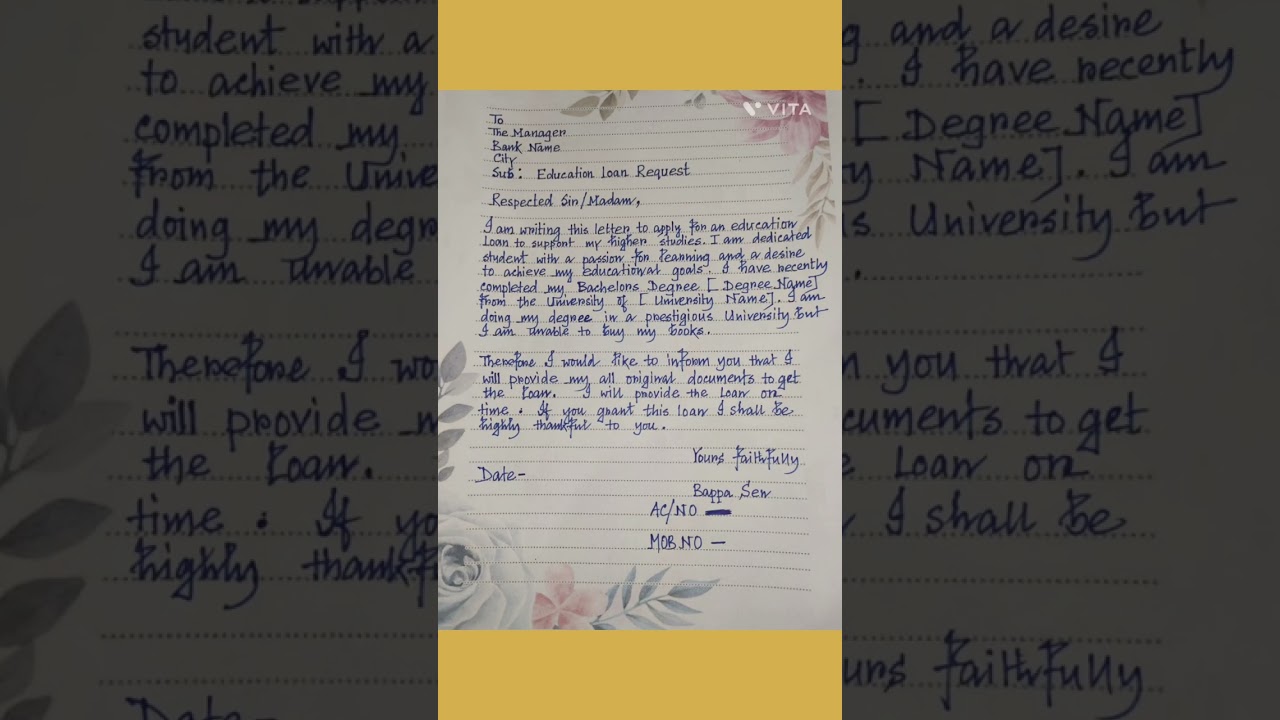 VITA
To
The Manager
Bank Name
City
Sub: Education Loan Request
Respected Sir/Madam,
I am writing this letter to apply for an education
loan to support my higher studies. I am dedicated
student with a passion for learning and a desire
to achieve my educational goals. I have recently
completed my Bachelors Degree [Degree Name]
from the University of [University Name]. I am
doing my degree in a prestigious University but
I am unable to buy my books.
Therefore I would like to inform you that I
will provide my all original documents to get
the loan. I will provide the loan on
time. If you grant this loan I shall be
highly thankful to you.
Yours faithfully
Date-
Bappa Sen
AC/NO —
MOB.NO —